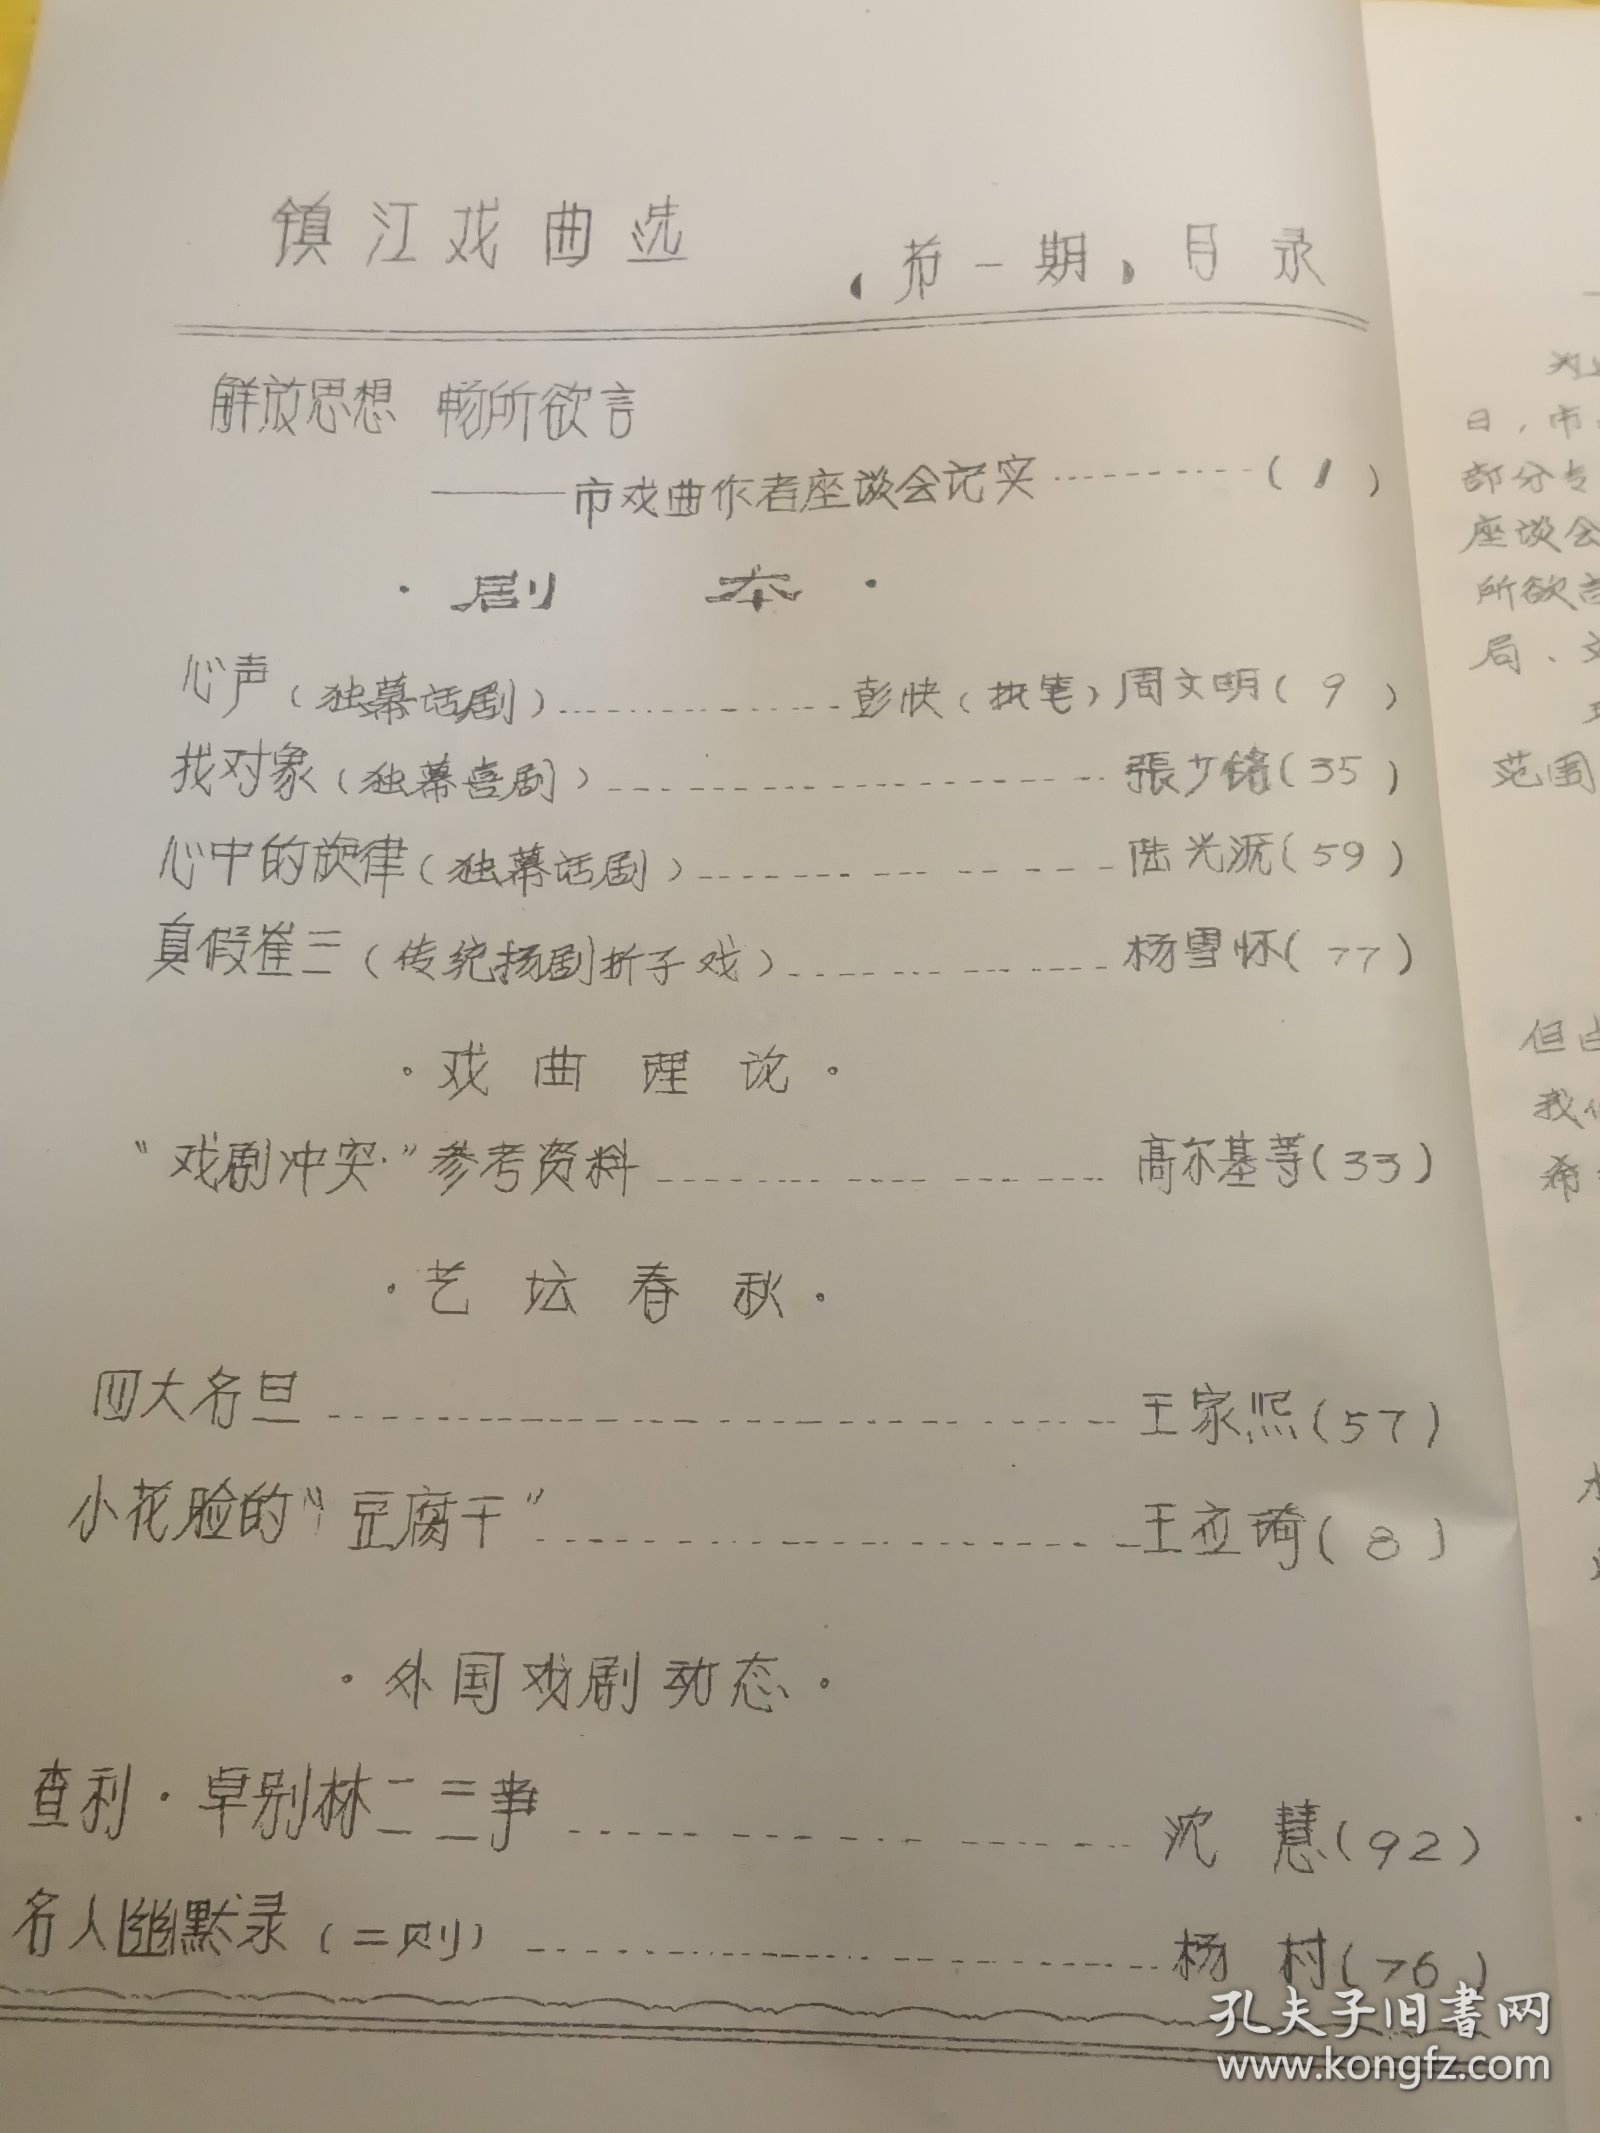 镇江戏曲选
（第一期）目录
解放思想 畅所欲言
———市戏曲作者座谈会记实…………（1）
·剧 本·
心声（独幕话剧）…………彭快（执笔）周文明（9）
找对象（独幕喜剧）…………張少铭（35）
心中的旋律（独幕话剧）…………陆光派（59）
真假崔三（传统扬剧折子戏）…………杨雪怀（77）
·戏曲理论·
“戏剧冲突”参考资料…………高尔基等（33）
·艺坛春秋·
四大名旦…………王家熙（57）
小花脸的“豆腐干”…………王立琦（8）
·外国戏剧动态·
查利·卓别林二三事…………沈 慧（92）
名人幽默录（二则）…………杨 村（76）
日，市
部分专
座谈会
所欲言
局、文
范围
但
我
希
孔夫子旧書网
www.kongfz.com